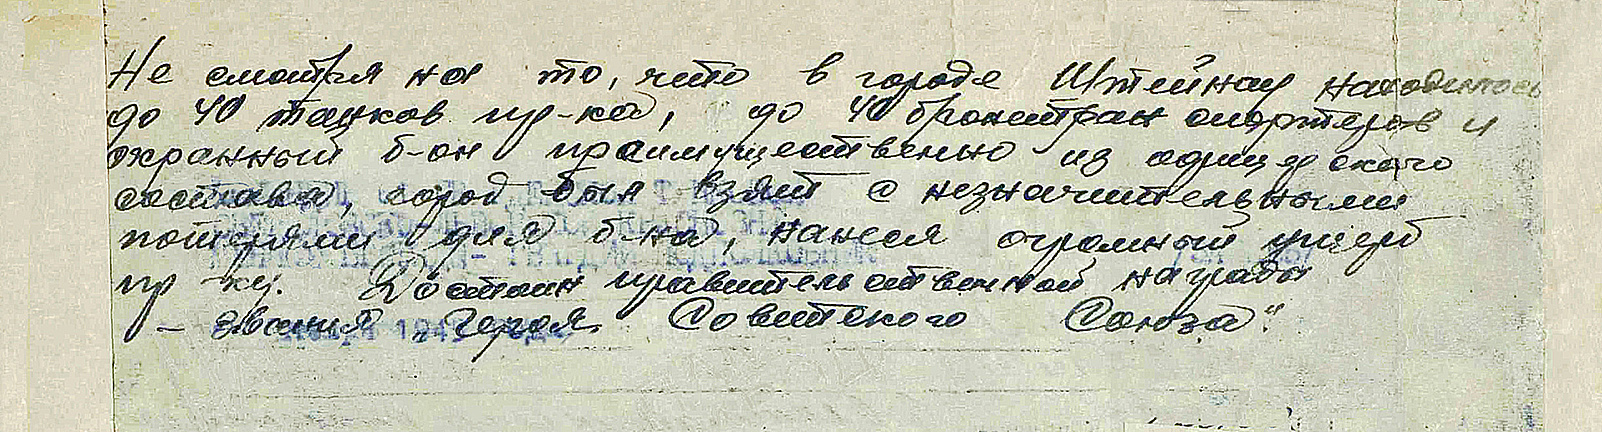 Не смотря на то, что в городе Штейнау находилось
до 40 танков пр-ка, до 40 бронетранспортеров и
охранный б-он преимущественно из офицерского
состава, город был взят с незначительными
потерями для б-на, нанеся огромный ущерб
пр-ку. Достоин правительственной награды
– звания Героя Советского Союза"